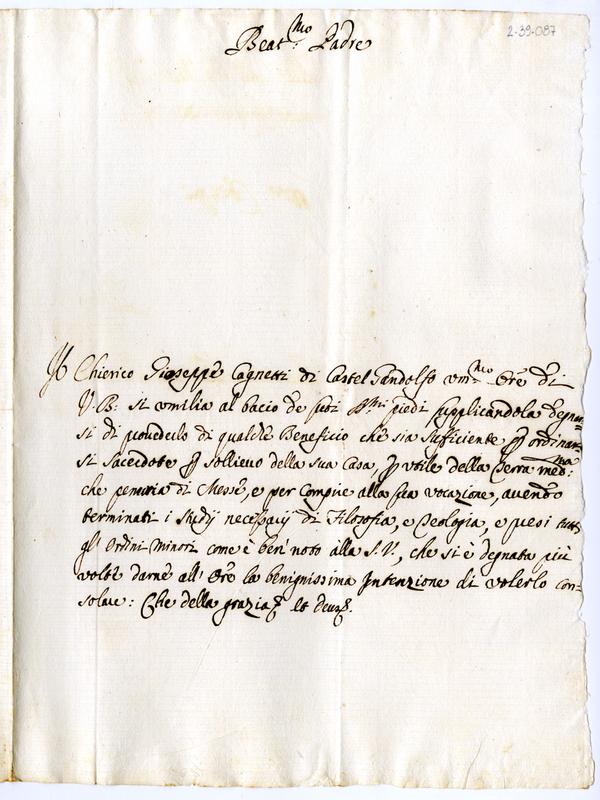 2-39-087
Beat.mo Padre
Il Chierico Gioseppe Cagnetti di Castel Gandolfo um.mo Ore di
V. B: si umilia al bacio de suoi Ssmi piedi supplicandola degnar=
si di provederlo di qualche Beneficio che sia sufficiente p ordinar=
si Sacerdote p sollievo della sua Casa, p utile della Terra med:ma
che penuria di Messe, e per compire alla sua vocazione, avendo
terminati i studij necessarij di Filosofia, e Teologia, e presi tutti
gl' Ordini Minori come è ben' noto alla S. V., che si è degnata più
volte darne all' Ore la benignissima Intenzione di volerlo con=
solare: Che della grazia